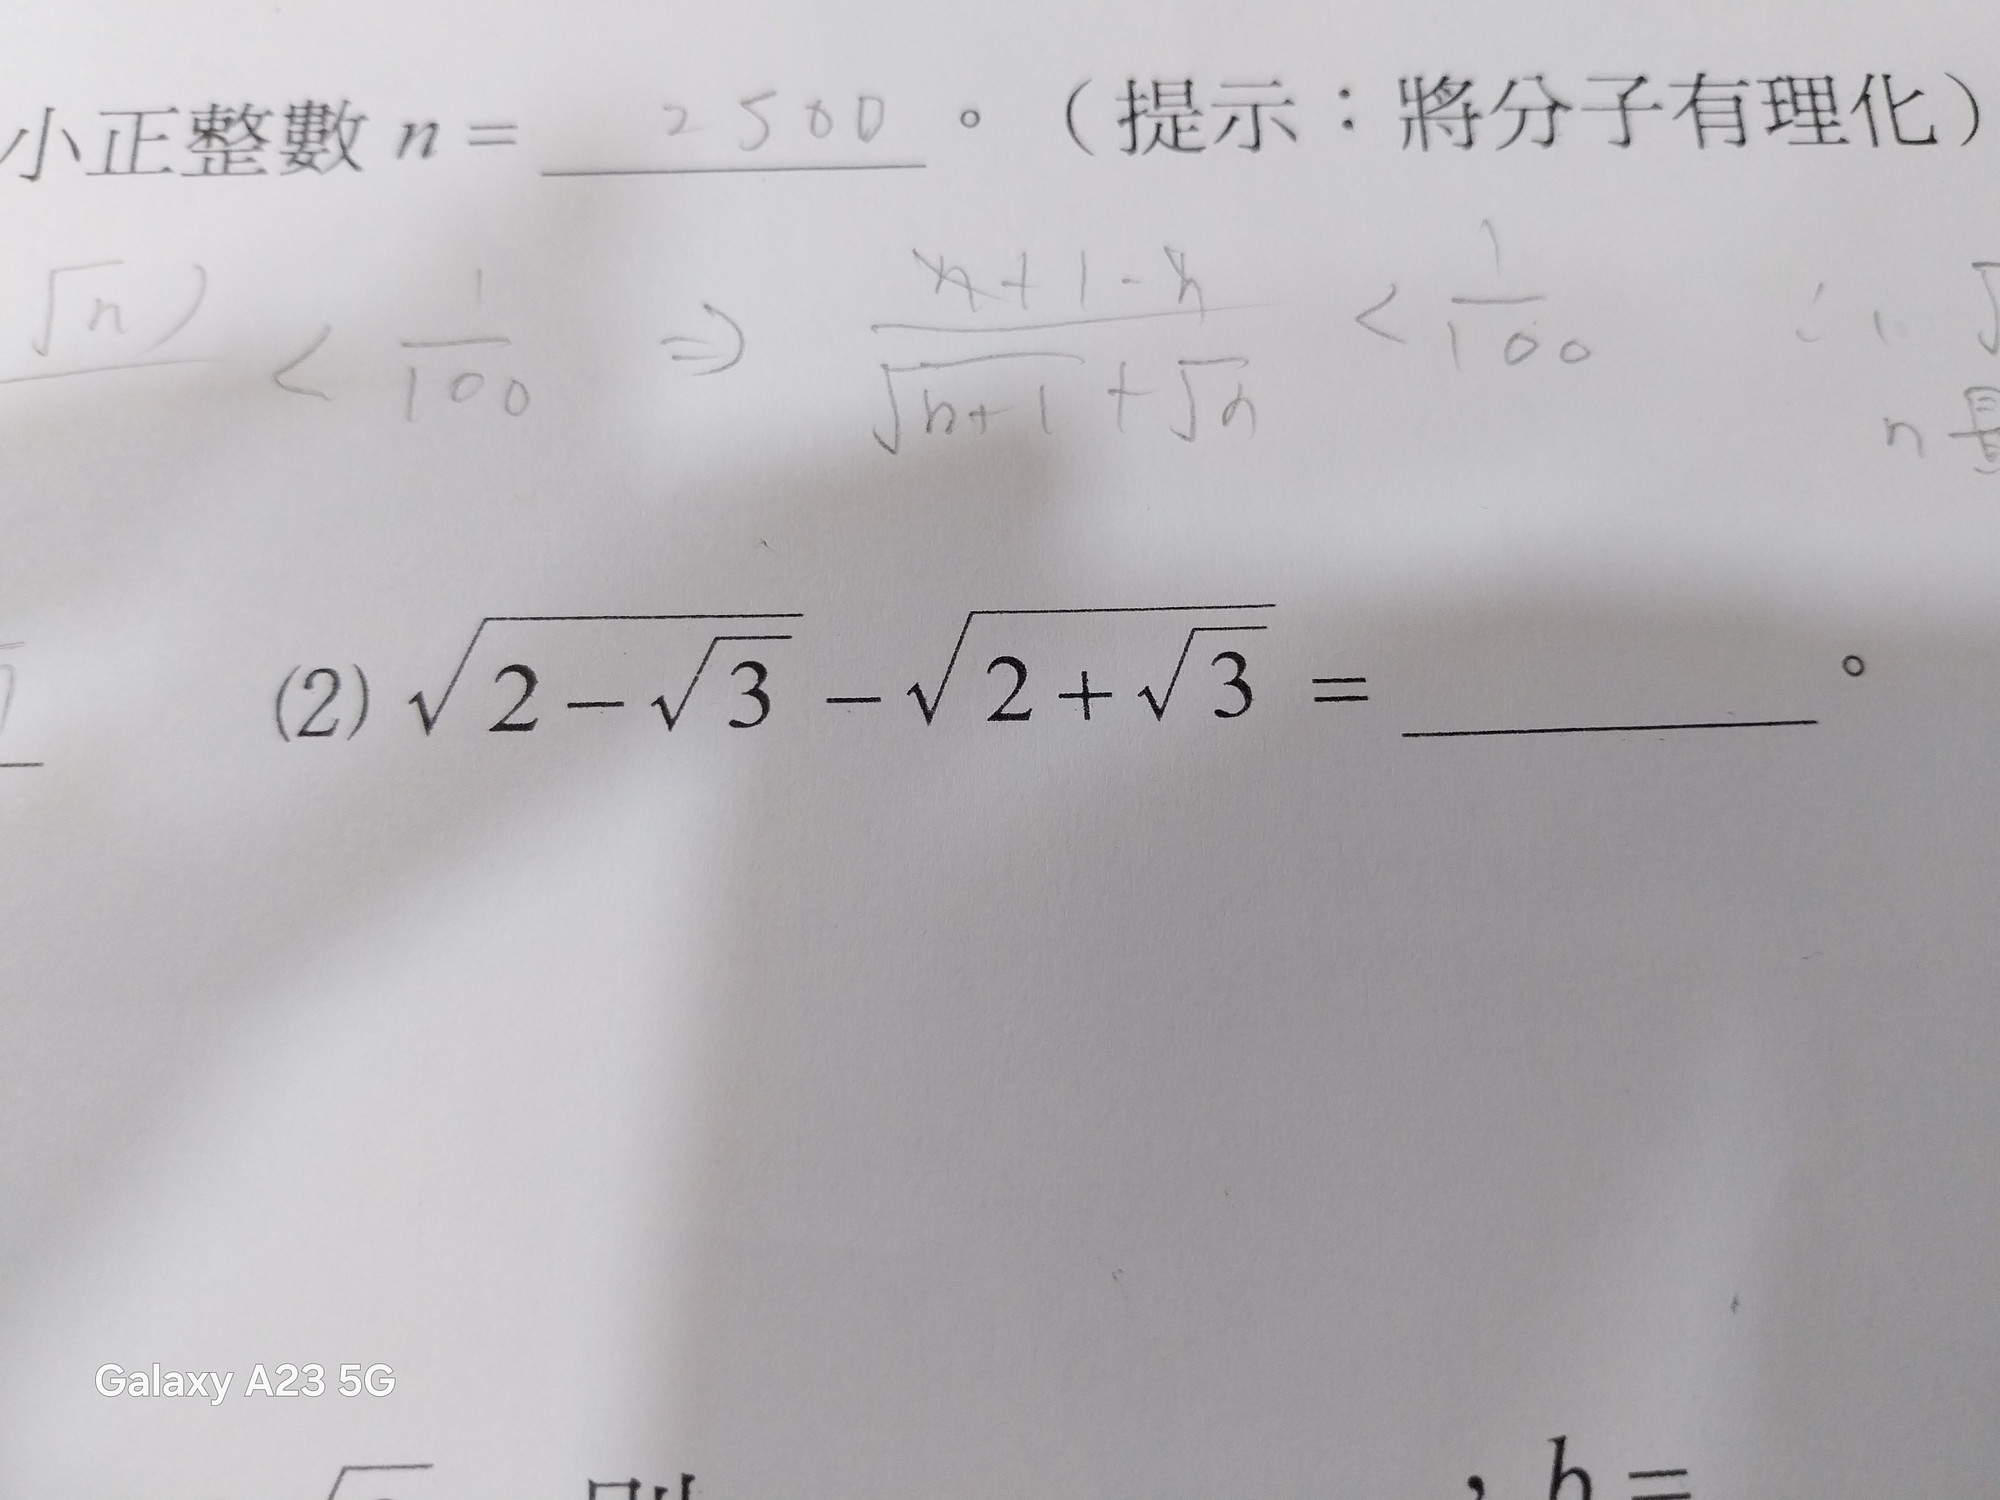 小正整數 n = 2500 。（提示：將分子有理化）
√n) < 1/100 ⇒ (n+1-n)/(√(n+1) + √n) < 1/100 ∴ √
n
(2) √(2-√3) - √(2+√3) = ______ 。
Galaxy A23 5G
則 , b =